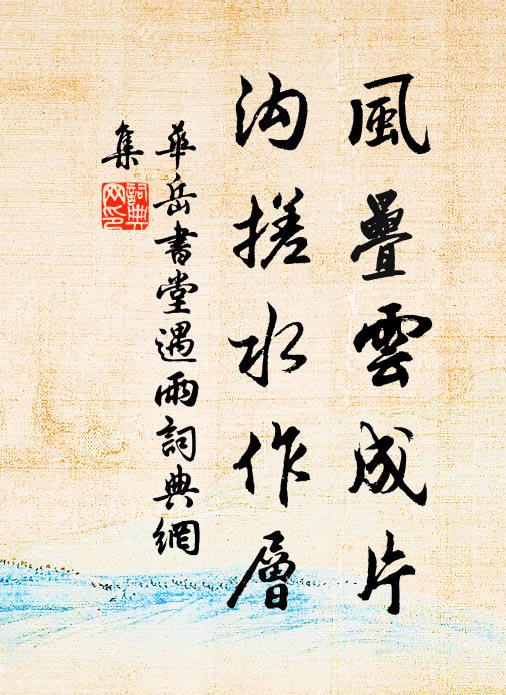 風疊雲成片
沟搓水作層
華岳書堂遇雨詞典網
集
詞典网印